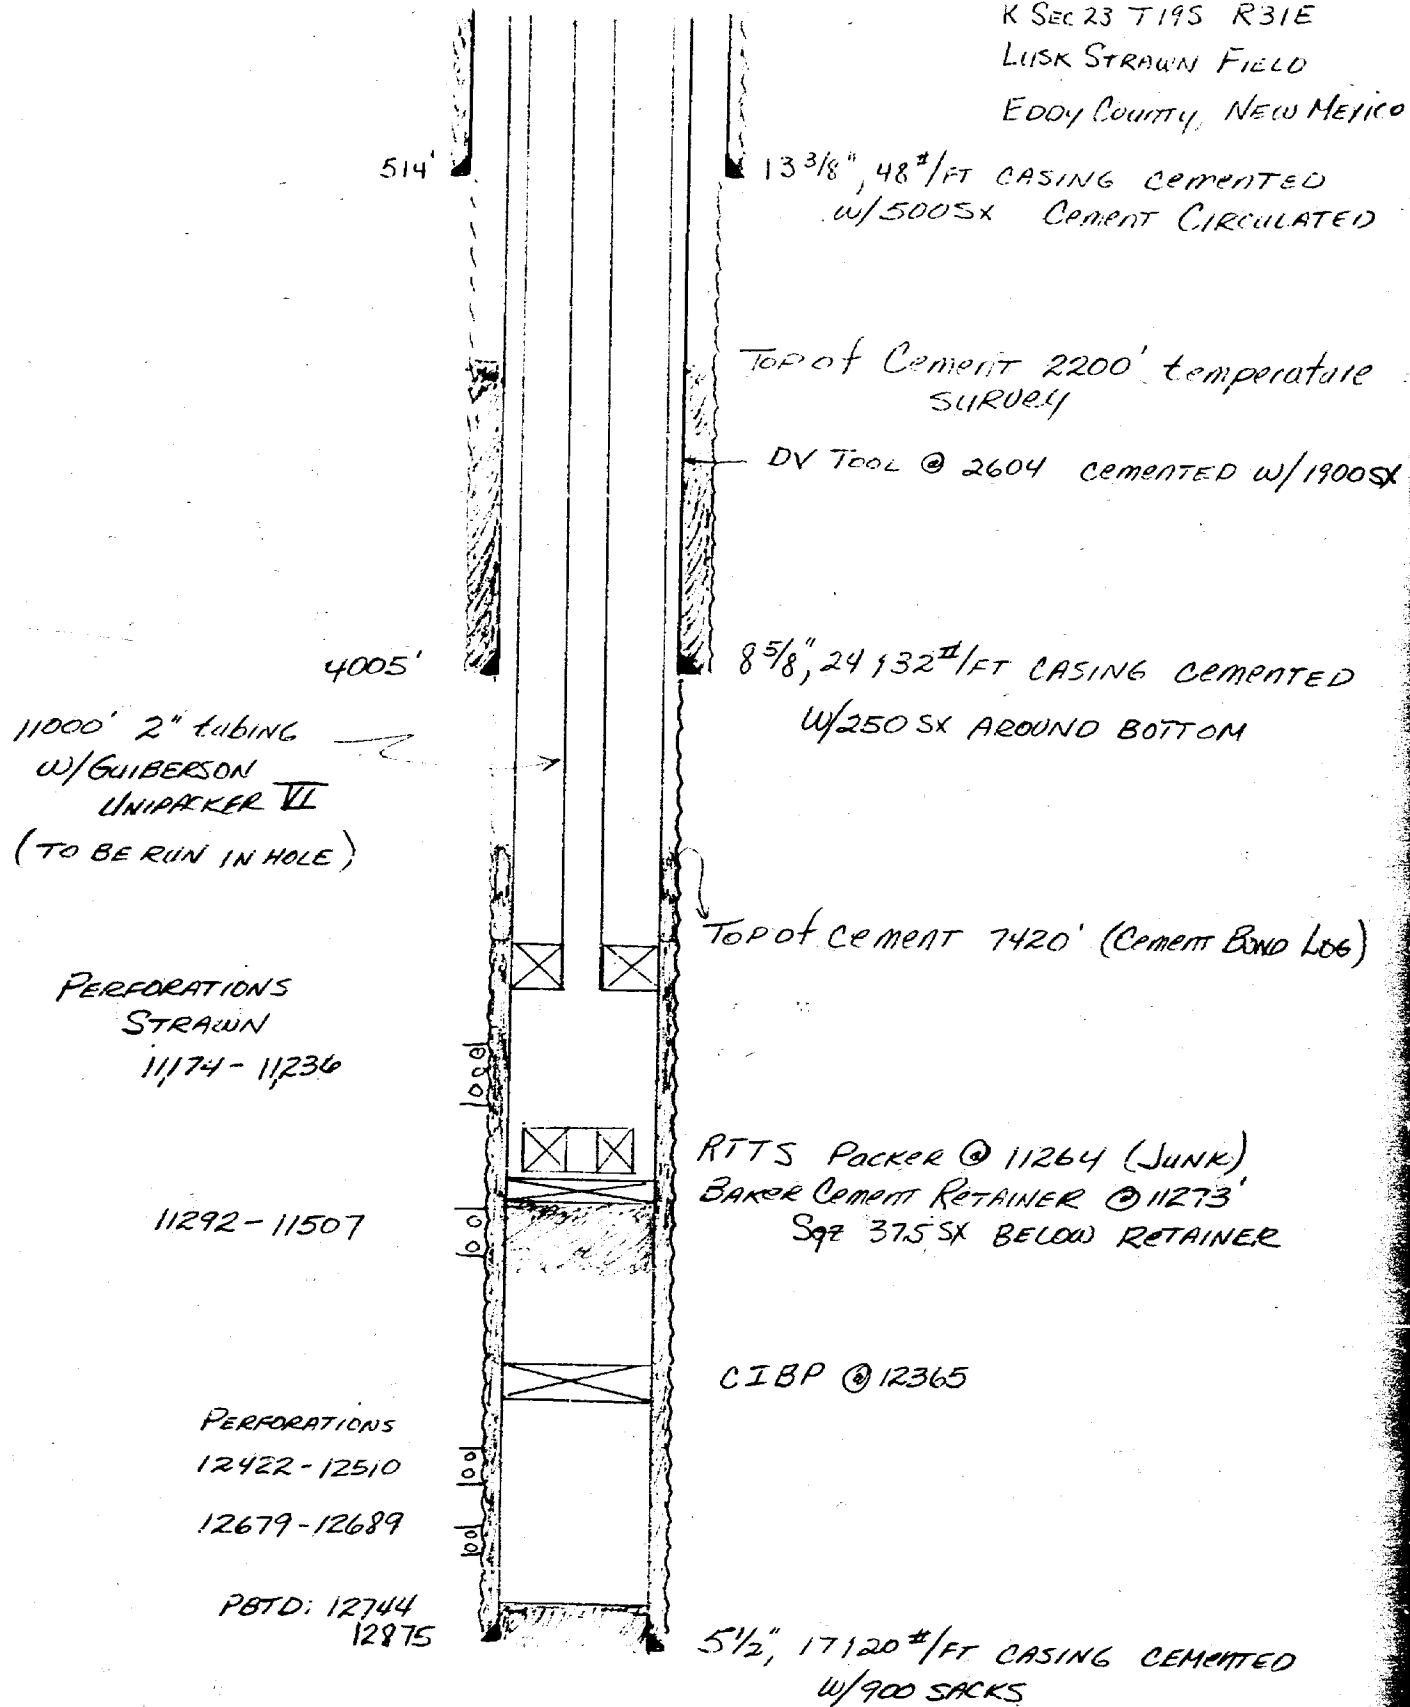 K SEC 23 T19S R31E
LUSK STRAWN FIELD
EDDY COUNTY, NEW MEXICO
514'
13 3/8", 48#/FT CASING CEMENTED
W/500SX CEMENT CIRCULATED
TOP OF CEMENT 2200' temperature
SURVEY
DV TOOL @ 2604 CEMENTED W/1900SX
4005'
8 5/8", 24 & 32#/FT CASING CEMENTED
W/250 SX AROUND BOTTOM
11000' 2" tubing
W/GUIBERSON
UNIPACKER VI
(TO BE RUN IN HOLE)
TOP OF CEMENT 7420' (CEMENT BOND LOG)
PERFORATIONS
STRAWN
11,174 - 11,236
RTTS PACKER @ 11264 (JUNK)
BAKER CEMENT RETAINER @ 11273'
Sqz 375 SX BELOW RETAINER
11292 - 11507
CIBP @ 12365
PERFORATIONS
12422 - 12510
12679 - 12689
PBTD: 12744
12875
5 1/2", 17 & 20#/FT CASING CEMENTED
W/900 SACKS